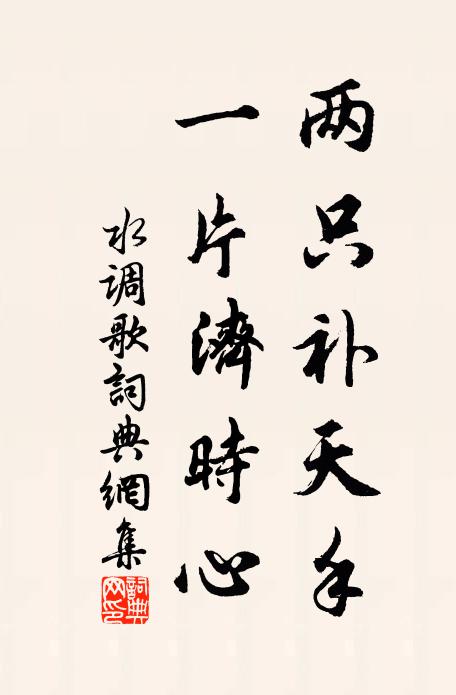 两只补天手
一片濟時心
水调歌詞典網集
詞典网印